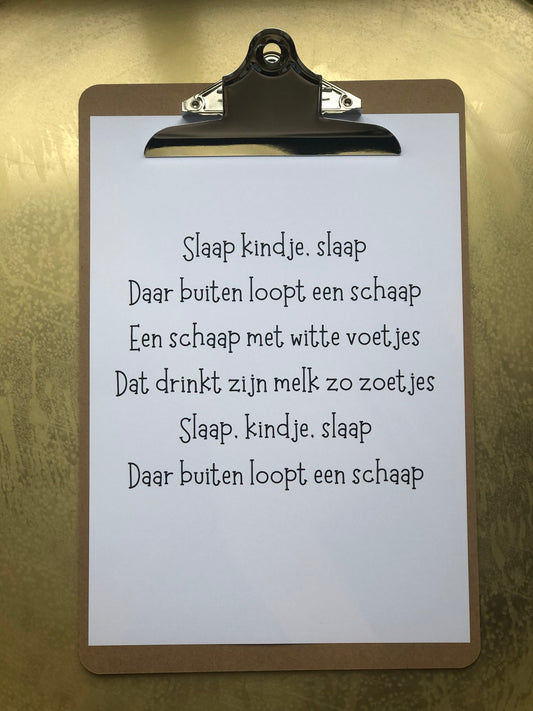 Slaap kindje, slaap
Daar buiten loopt een schaap
Een schaap met witte voetjes
Dat drinkt zijn melk zo zoetjes
Slaap, kindje, slaap
Daar buiten loopt een schaap